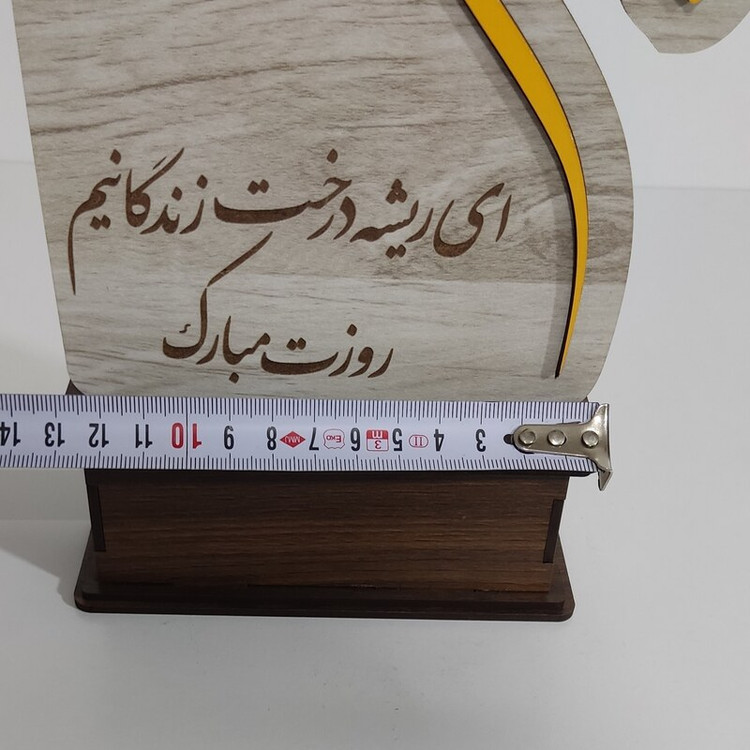 ای ریشه درخت زندگانیم
روزت مبارک
14 13 12 11 10 9 8 MMJ 7 Exo 6 3 m 5 II 4 3